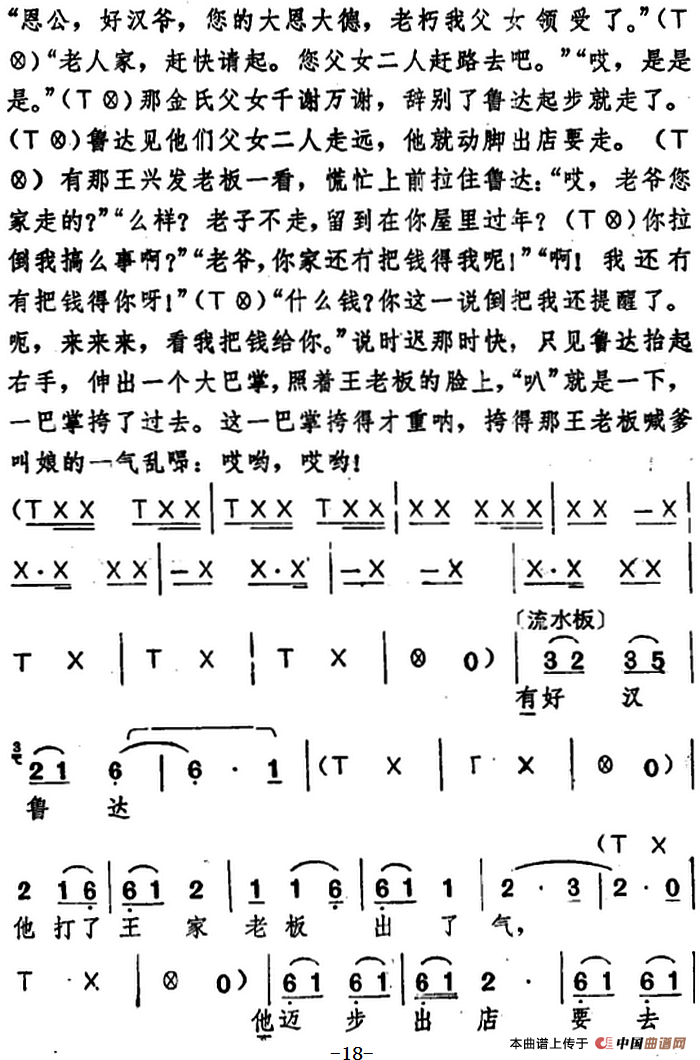 “恩公，好汉爷，您的大恩大德，老朽我父女领受了。”（T
⊗）“老人家，赶快请起。您父女二人赶路去吧。”“哎，是是
是。”（T ⊗）那金氏父女千谢万谢，辞别了鲁达起步就走了。
（T ⊗）鲁达见他们父女二人走远，他就动脚出店要走。（T
⊗）有那王兴发老板一看，慌忙上前拉住鲁达：“哎，老爷您
家走的？”“么样？老子不走，留到在你屋里过年？（T ⊗）你拉
倒我搞么事啊？”“老爷，你家还冇把钱得我呢！”“啊！我还冇
有把钱得你呀！”（T ⊗）“什么钱？你这一说倒把我还提醒了。
呃，来来来，看我把钱给你。”说时迟那时快，只见鲁达抬起
右手，伸出一个大巴掌，照着王老板的脸上，“叭”就是一下，
一巴掌挎了过去。这一巴掌挎得才重呐，挎得那王老板喊爹
叫娘的一气乱嗥：哎哟，哎哟！
（T X X T X X | T X X T X X | X X X X X | X X — X |
X · X X X | — X X · X | — X — X | X · X X X |
〔流水板〕
T X | T X | T X | ⊗ 0）| 3 2 3 5 |
有好 汉
3 2 1 6 | 6 · 1 |（T X | T X | ⊗ 0）|
鲁 达
（T X
2 1 6 | 6 1 2 | 1 1 6 | 6 1 1 | 2 · 3 | 2 · 0 |
他 打了 王 家 老 板 出 了 气，
T X | ⊗ 0）| 6 1 6 1 | 6 1 2 · | 6 1 6 1 |
他迈 步 出 店 要 去
-18-
本曲谱上传于 中国曲谱网